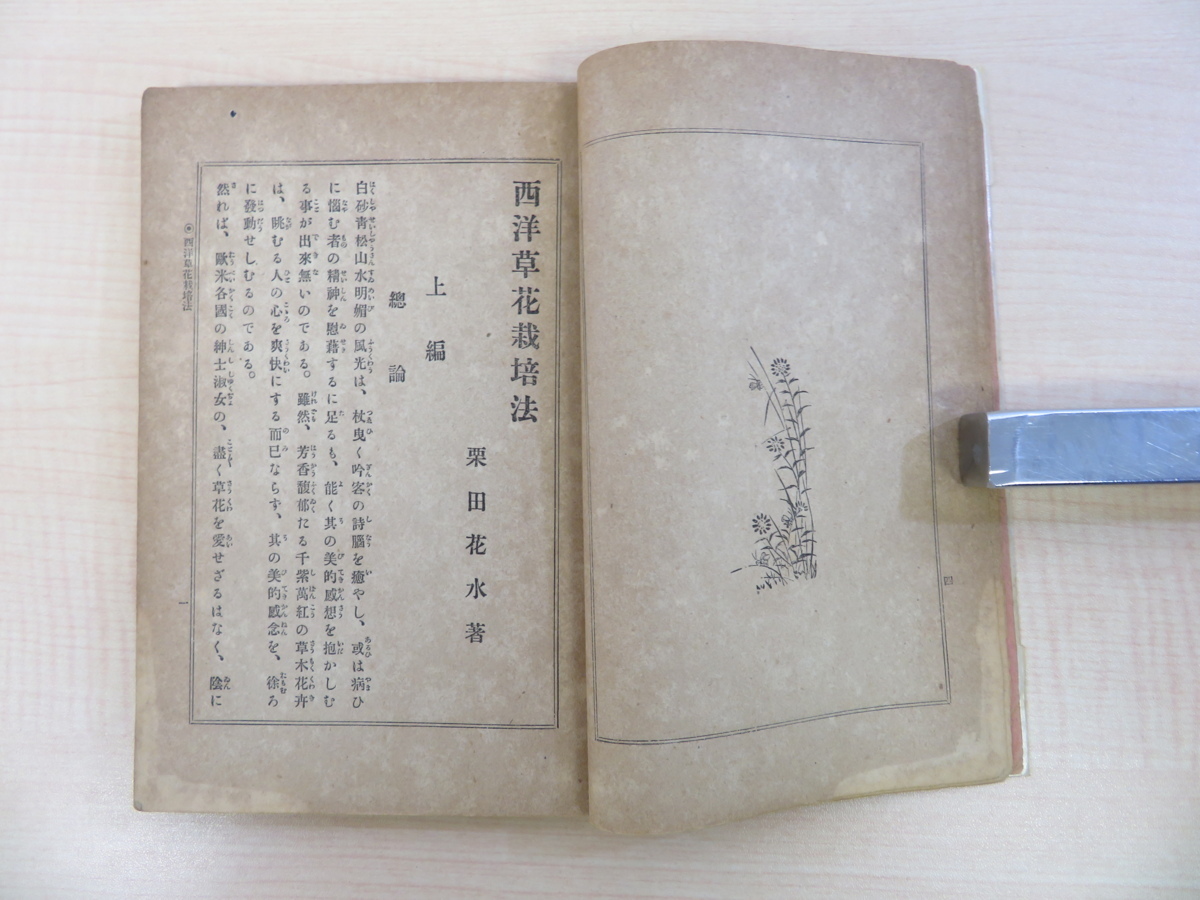 四
西洋草花栽培法
栗田花水著
上編
總論
白砂靑松山水明媚の風光は、杖曳く吟客の詩腦を癒やし、或は病ひ
に惱む者の精神を慰藉するに足るも、能く其の美的感想を抱かしむ
る事が出來無いのである。雖然、芳香馥郁たる千紫萬紅の草木花卉
は、眺むる人の心を爽快にする而已ならず、其の美的感念を、徐ろ
に發動せしむるのである。
然れば、歐米各國の紳士淑女の、盡く草花を愛せざるはなく、陰に
◉西洋草花栽培法
一